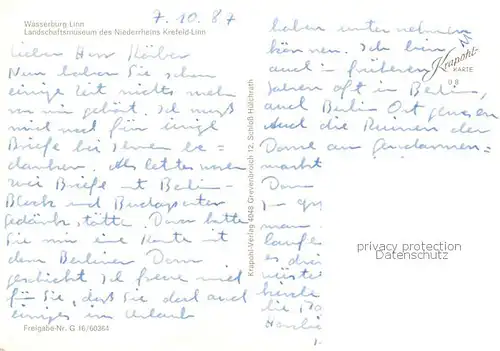 Wasserburg Linn
Landschaftsmuseum des Niederrheins Krefeld-Linn
7.10.87
Lieber Herr Körber
Nun haben Sie schon
einige Zeit nichts mehr
von mir gehört. Ich muß
mich noch für einige
Briefe bei Ihnen be=
danken. Als letztes waren
zwei Briefe mit Berlin-
Block und Budapester
gedächtsstätte. Dann hatte
Sie mir eine Karte mit
dem Berliner Dom
geschickt Ich freue mich
für Sie, daß Sie doch auch
einiges im Urlaub
Freigabe-Nr. G 16/60364
Krapohl-Verlag 4048 Grevenbroich 12, Schloß Hülchrath
haben unternehmen
können. Ich bin
auch in früheren
Jahren oft in Berlin,
auch Berlin Ost gewesen
Auch die Ruinen der
Dome am Gendarmen=
markt
Dom
man
laufe
es
wüste
Krapohl-
KARTE
privacy protection
Datenschutz